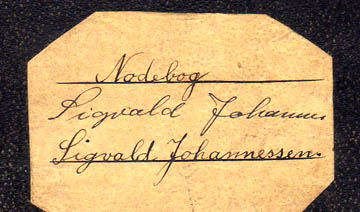 Nodebog
Sigvald Johannes
Sigvald. Johannessen.